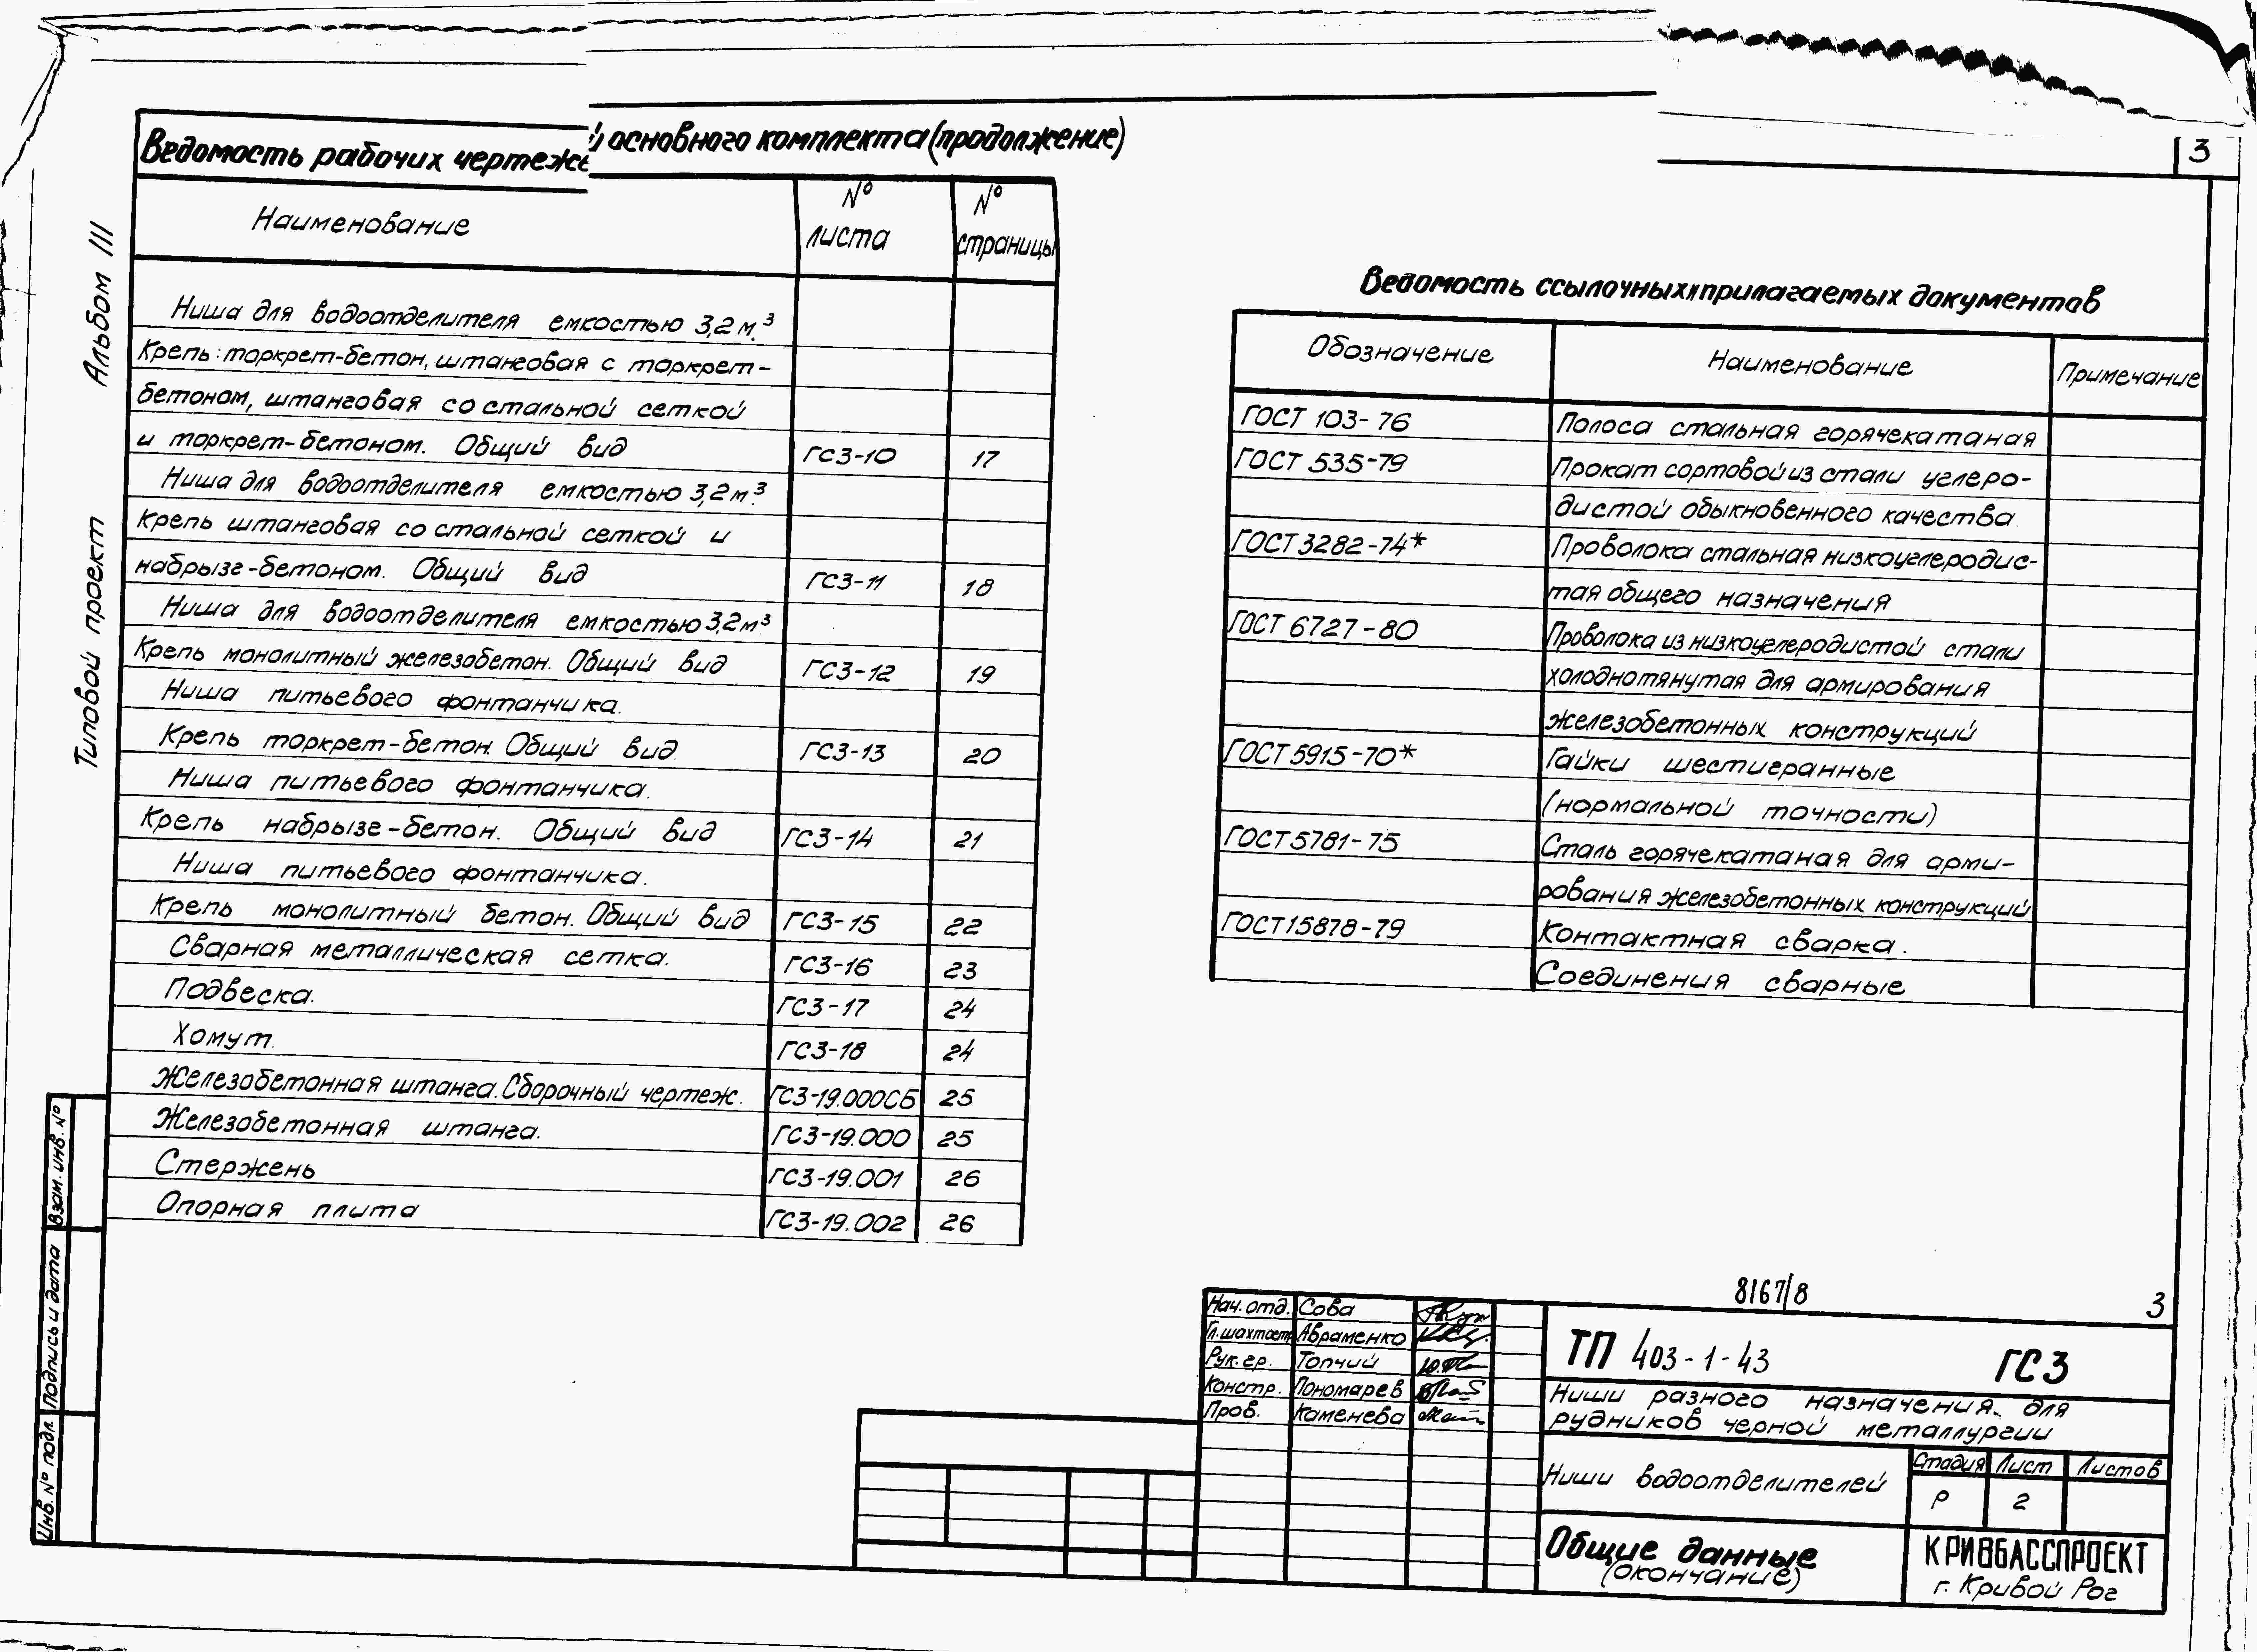 3
Ведомость рабочих чертежей основного комплекта (продолжение)
Наименование
№ листа
№ страницы
Ниша для водоотделителя емкостью 3,2 м.³
Крепь: торкрет-бетон, штанговая с торкрет-
бетоном, штанговая со стальной сеткой
и торкрет-бетоном. Общий вид ГС3-10 17
Ниша для водоотделителя емкостью 3,2 м.³
Крепь штанговая со стальной сеткой и
набрызг-бетоном. Общий вид ГС3-11 18
Ниша для водоотделителя емкостью 3,2 м.³
Крепь монолитный железобетон. Общий вид ГС3-12 19
Ниша питьевого фонтанчика.
Крепь торкрет-бетон. Общий вид ГС3-13 20
Ниша питьевого фонтанчика.
Крепь набрызг-бетон. Общий вид ГС3-14 21
Ниша питьевого фонтанчика.
Крепь монолитный бетон. Общий вид ГС3-15 22
Сварная металлическая сетка. ГС3-16 23
Подвеска. ГС3-17 24
Хомут. ГС3-18 24
Железобетонная штанга. Сборочный чертеж. ГС3-19.000СБ 25
Железобетонная штанга. ГС3-19.000 25
Стержень ГС3-19.001 26
Опорная плита ГС3-19.002 26
Ведомость ссылочных и прилагаемых документов
Обозначение Наименование Примечание
ГОСТ 103-76 Полоса стальная горячекатаная
ГОСТ 535-79 Прокат сортовой из стали углеро-
дистой обыкновенного качества
ГОСТ 3282-74* Проволока стальная низкоуглеродис-
тая общего назначения
ГОСТ 6727-80 Проволока из низкоуглеродистой стали
холоднотянутая для армирования
железобетонных конструкций
ГОСТ 5915-70* Гайки шестигранные
(нормальной точности)
ГОСТ 5781-75 Сталь горячекатаная для арми-
рования железобетонных конструкций
ГОСТ 15878-79 Контактная сварка.
Соединения сварные
Типовой проект Альбом III
Взам. инв. №
Подпись и дата
Инв. № подл.
8167/8
3
Нач. отд. Сова
Гл. шахтостр. Авраменко
Рук. гр. Топчий
Констр. Пономарев
Пров. Каменева
ТП 403-1-43 ГС3
Ниши разного назначения для
рудников черной металлургии
Ниши водоотделителей
Стадия Лист Листов
Р 2
Общие данные
(окончание)
КРИВБАССПРОЕКТ
г. Кривой Рог